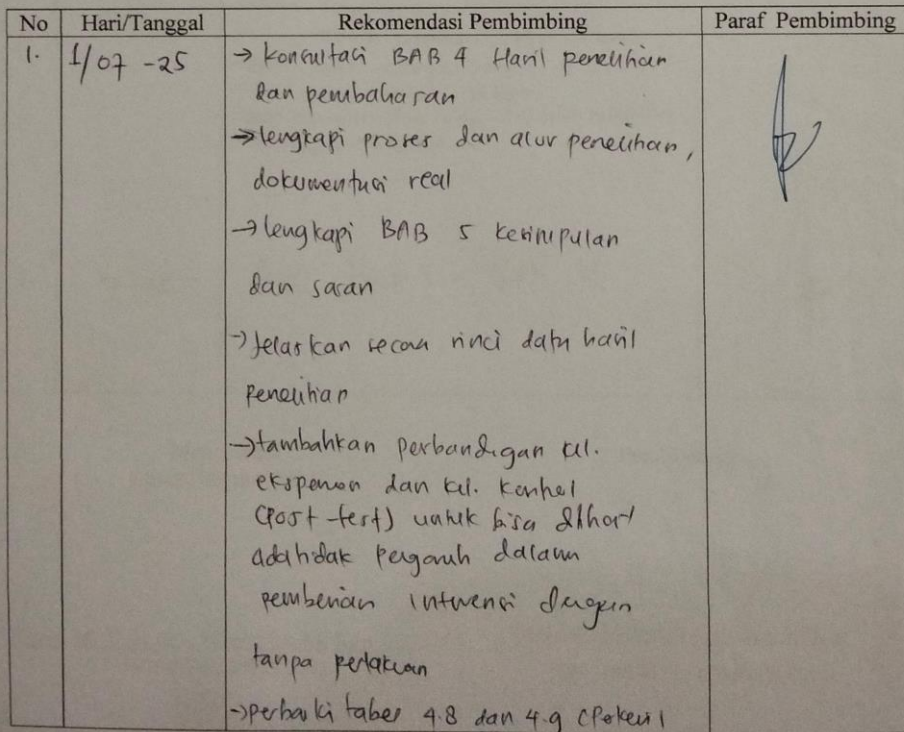 No Hari/Tanggal Rekomendasi Pembimbing Paraf Pembimbing
1. 1/07-25 → konsultasi BAB 4 Hasil penelitian
dan pembahasan
→ lengkapi proses dan alur penelitian,
dokumentasi real
→ lengkapi BAB 5 kesimpulan
dan saran
→ jelaskan secara rinci data hasil
penelitian
→ tambahkan perbandigan kel.
eksperimen dan kel. kontrol
(post-test) untuk bisa dilihat
ada tidak pengaruh dalam
pemberian intervensi dengan
tanpa perlakuan
→ perbaiki tabel 4.8 dan 4.9